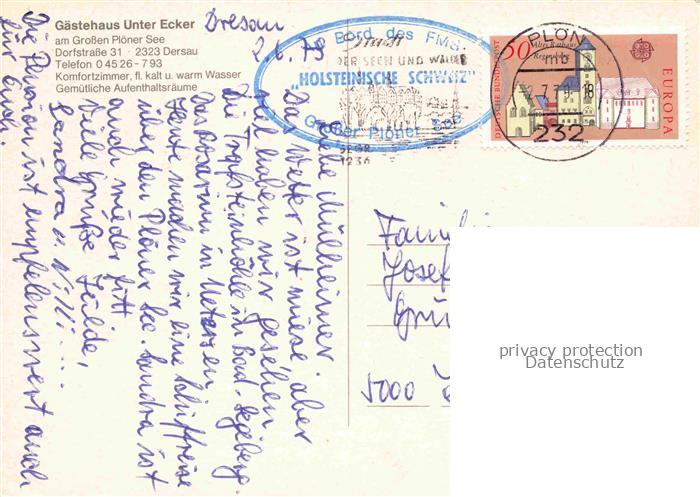 Gästehaus Unter Ecker
am Großen Plöner See
Dorfstraße 31 · 2323 Dersau
Telefon 0 45 26 - 7 93
Komfortzimmer, fl. kalt u. warm Wasser
Gemütliche Aufenthaltsräume
Dersau
2.6.79
Bord des FMS.
DER SEEN UND WÄLDER
"HOLSTEINISCHE SCHWEIZ"
Großer Plöner See
1236
PLÖN
mb
18
232
50
Altes Rathaus
Regensburg
DEUTSCHE BUNDESPOST
EUROPA
Liebe Mülheimer.
Das Wetter ist miese, aber
wir haben wir gesehen
die Tropfsteinhöhle in Bad Segeberg.
Das Rosarium in Uetersen
Heute machen wir eine Schiffreise
über den Plöner See. Sandra ist
auch wieder fitt
Viele Grüße Hilde,
Sandra u. Willi....
Die Pension ist empfelenswert auch
für euch.
Familie
Josef
5000
privacy protection
Datenschutz